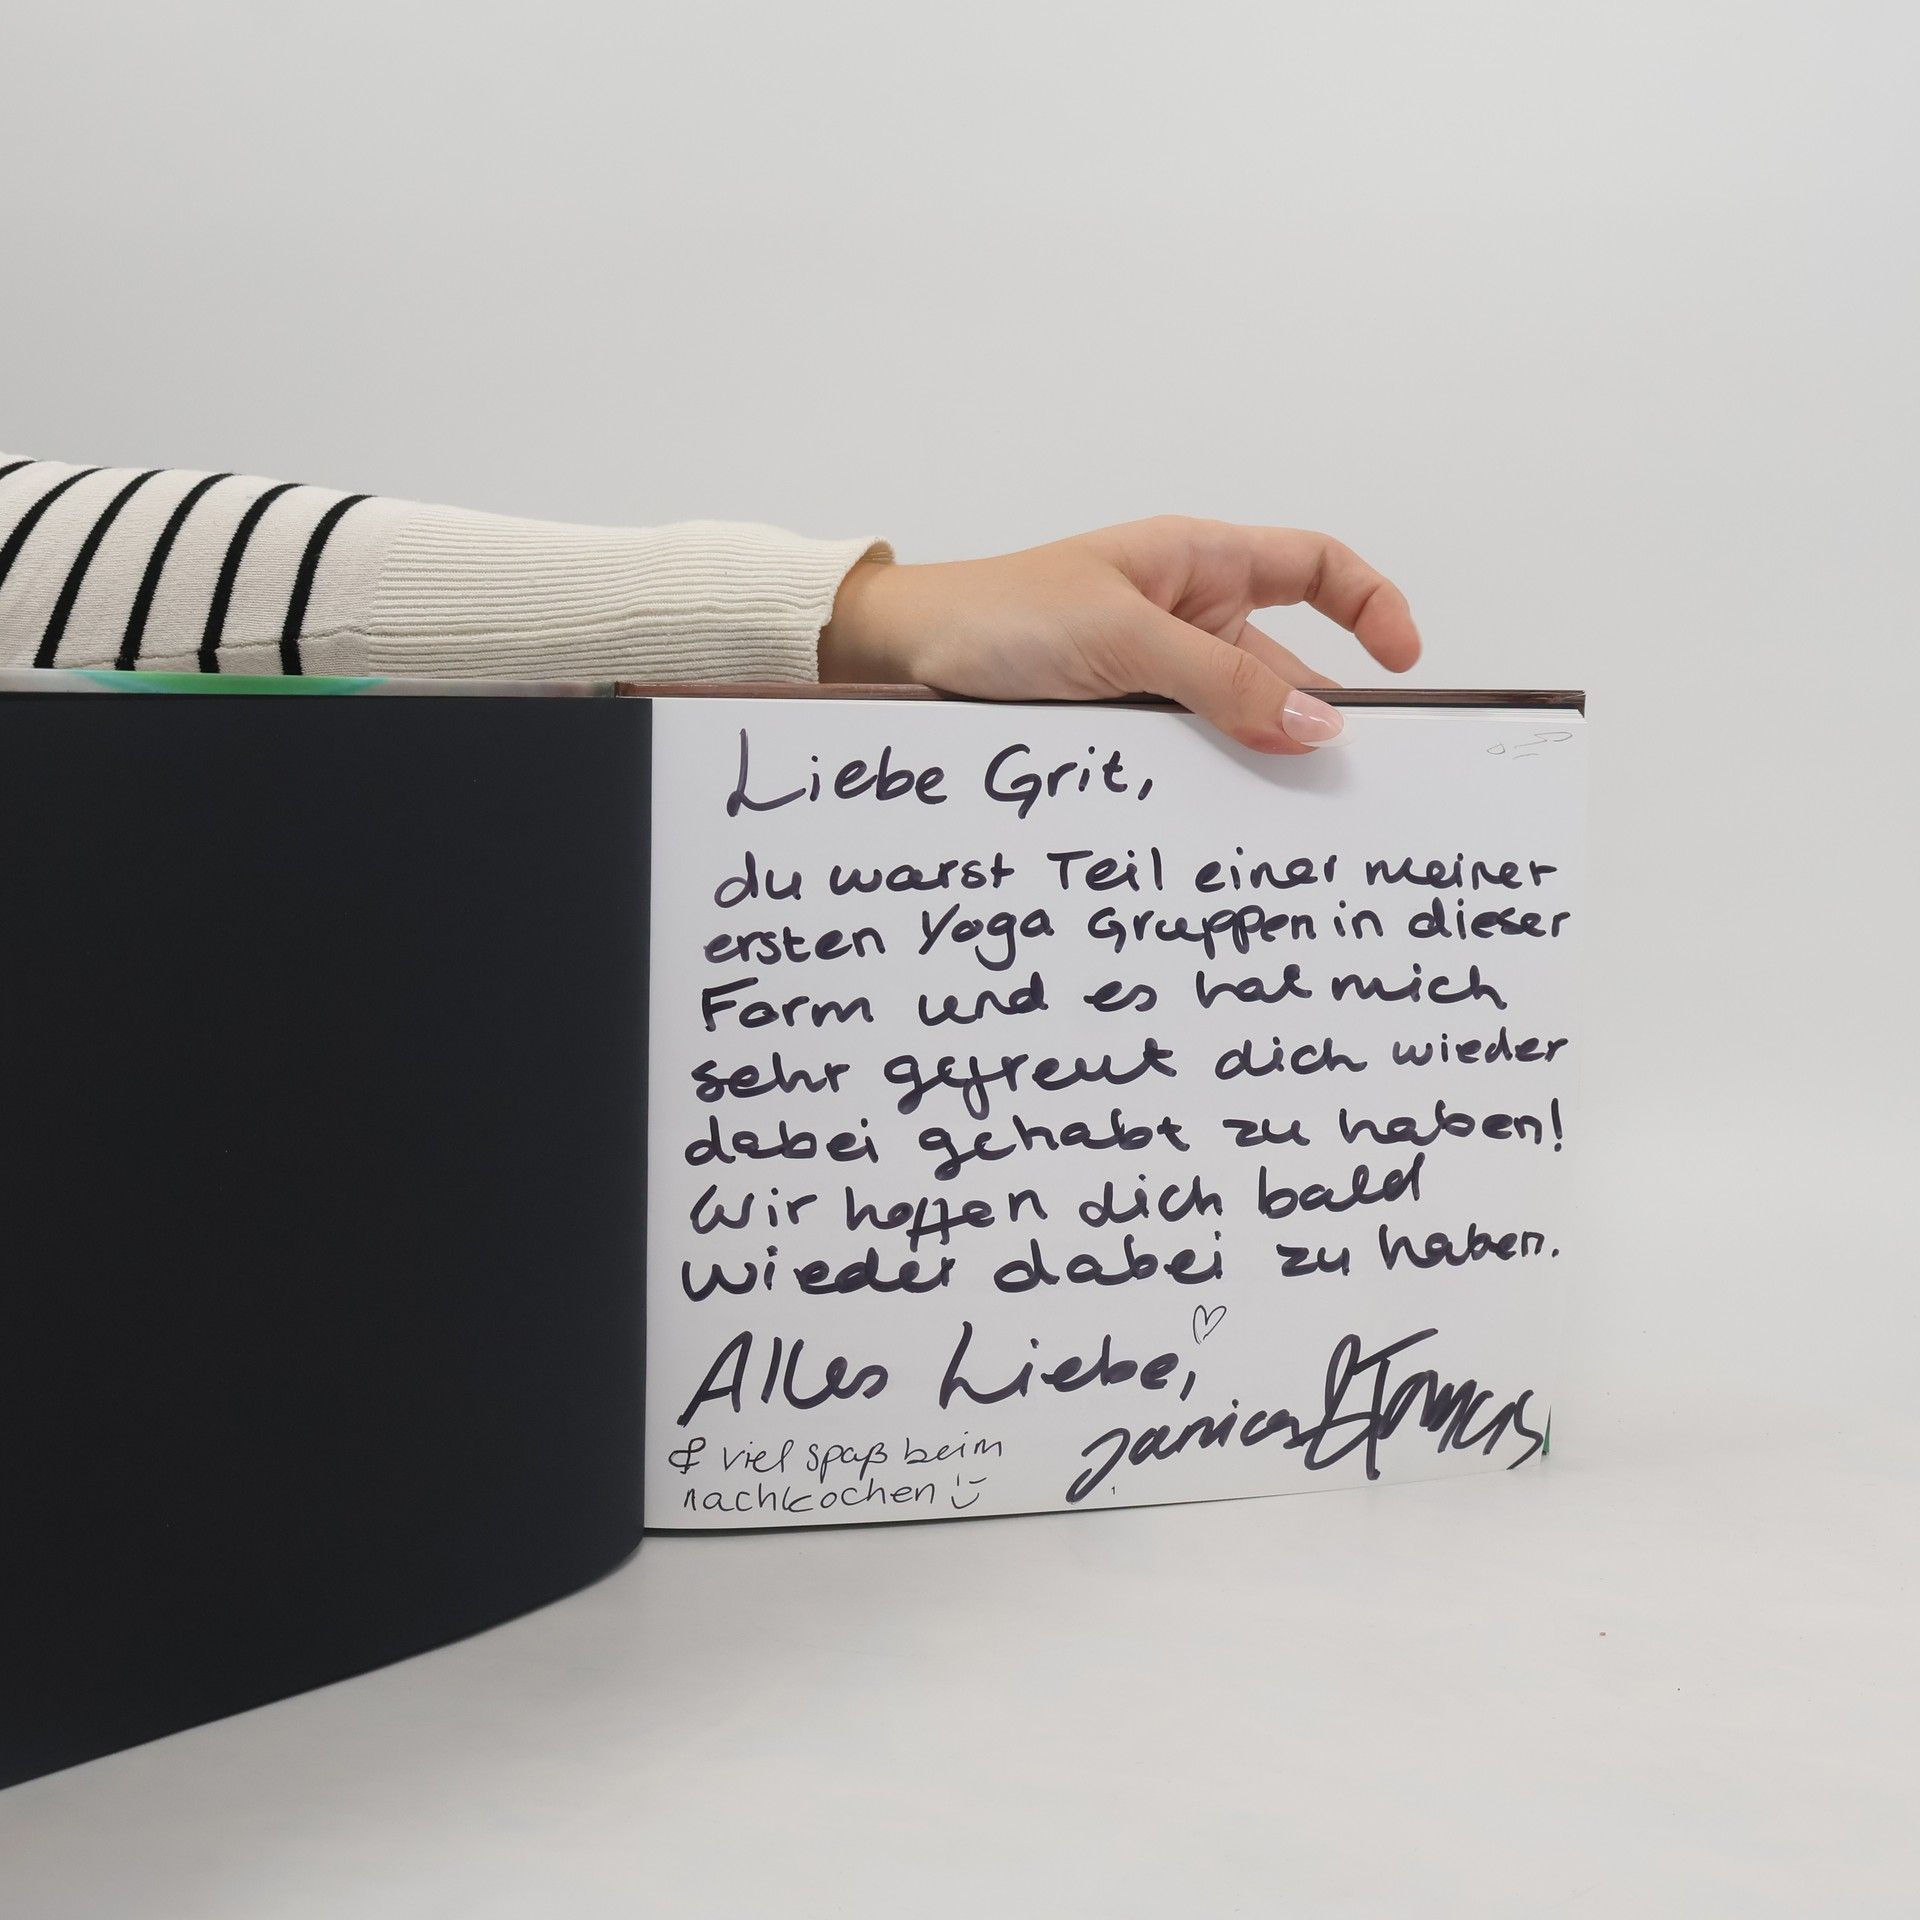 Liebe Grit,
du warst Teil einer meiner
ersten Yoga Gruppen in dieser
Form und es hat mich
sehr gefreut dich wieder
dabei gehabt zu haben!
Wir hoffen dich bald
wieder dabei zu haben.
Alles Liebe,
& viel spaß beim
nachkochen